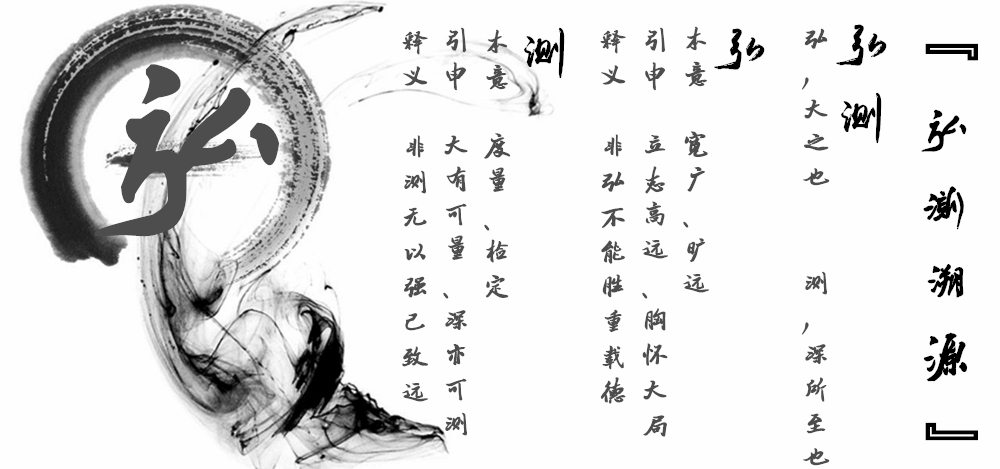 『弘测溯源』
弘测
弘，大之也 测，深所至也
弘
本意 宽广、旷远
引申 立志高远、胸怀大局
释义 非弘不能胜重载德
测
本意 度量、检定
引申 大有可量、深亦可测
释义 非测无以强己致远
弘